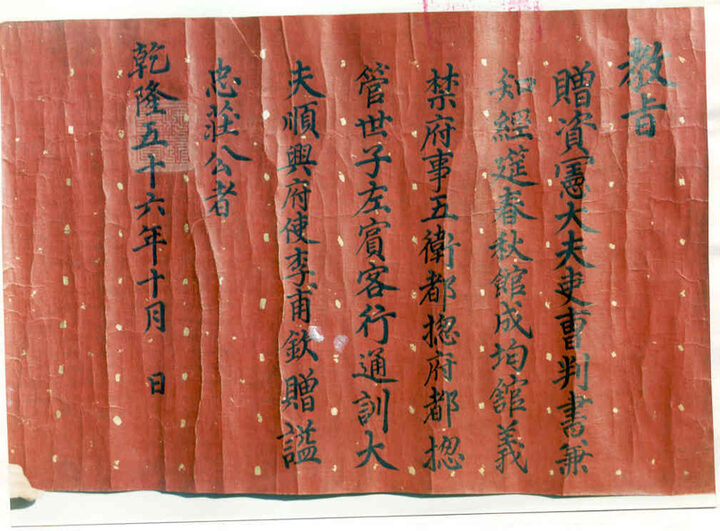 教旨
贈資憲大夫吏曹判書兼
知經筵春秋館成均館義
禁府事五衛都揔府都揔
管世子左賓客行通訓大
夫順興府使李甫欽贈諡
忠莊公者
乾隆五十六年十月 日